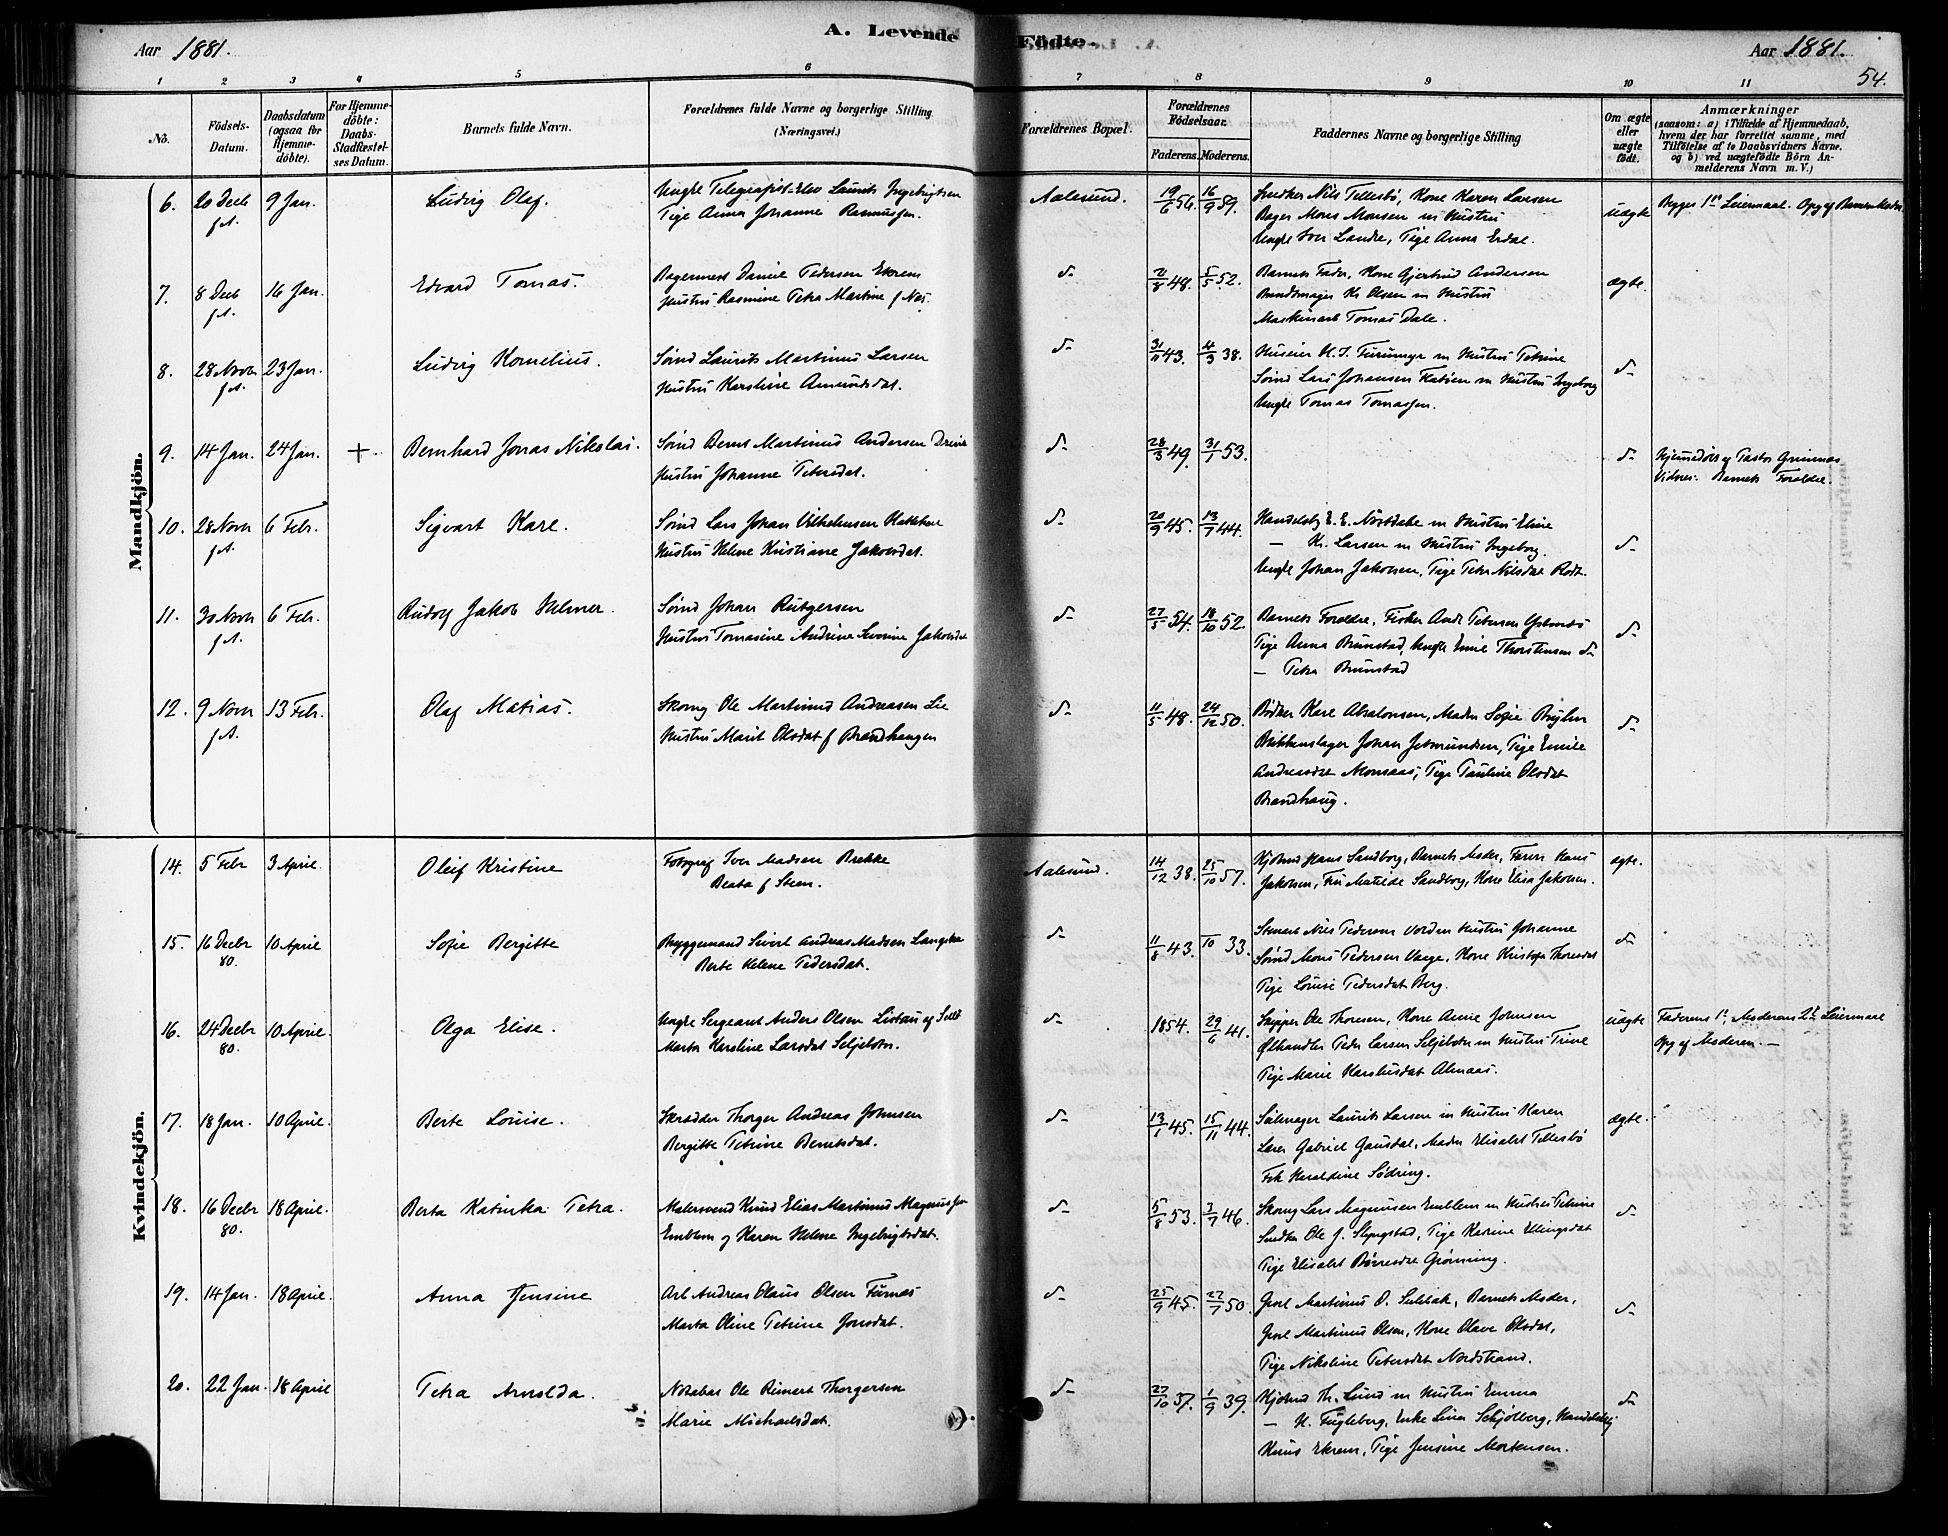 Aar 1881.
A. Levende Födte.
Aar 1881.
54.
1 2 3 4 5 6 7 8 9 10 11
No.
Födsels-Datum.
Daabsdatum (ogsaa for Hjemme-döbte).
For Hjemme-döbte: Daabs-Stadfæstel-ses Datum.
Barnets fulde Navn.
Forældrenes fulde Navne og borgerlige Stilling (Næringsvei.)
Forældrenes Bopæl.
Forældrenes Födselsaar.
Faderens. Moderens.
Faddernes Navne og borgerlige Stilling
Om ægte eller uægte født.
Anmærkninger
(saasom: a) i Tilfælde af Hjemmedaab,
hvem der har forrettet samme, med
Tilföielse af to Daabsvidners Navne.
og b) ved uægtefödte Börn An-
melderens Navn m. V.)
Mandkjön.
6. 20 Decb f.A. 9 Jan. Ludvig Olaf.
Ungk Telegrafist-Elev Laurits Ingebrigtsen
Pige Anna Johanne Rasmussen.
Aalesund. 19/6 56. 16/9 59.
Snedker Nils Tellesbø, Kone Karen Larsen
Bager Mons Monsen m Hustru
Ungk Iver Landre, Pige Anna Erdal.
uægte
Begges 1ste Leiermaal. Opg af Barnets Moder.
7. 8 Decb f.A. 16 Jan. Edvard Tomas.
Bagermest Daniel Pedersen Ekrem
Hustru Rasmine Petra Martine f Nes.
d- 21/8 48. 5/5 52.
Barnets Fader, Kone Gjertrud Andersen
Bundtmager Kr Olsen m Hustru
Maskinarb Tomas Dale.
ægte.
8. 28 Novb f.A. 23 Jan. Ludvig Kornelius.
Sømd Laurits Martinus Larsen
Hustru Karoline Amundsdat.
d- 31/11 43. 4/3 38.
Huseier H. J. Furumyr m Hustru Petrine
Sømd Lars Johansen Flatøen m Hustru Ingeborg
Ungk Tomas Tomassen.
d-
9. 14 Jan. 24 Jan. + Bernhard Jonas Nikolai.
Sømd Bernt Martinus Andersen
Hustru Johanne Petersdat.
d- 28/3 49. 31/1 53. d-
Hjemmedøbt af Pastor Grimnæs
Vidner: Barnets Forældre.
10. 28 Novr f.A. 6 Febr. Sigvart Karl.
Sømd Lars Johan Vilhelmsen
Hustru Helene Kristiane Jakobsdat.
d- 20/9 45. 13/7 44.
Handelsbg E. E. Nørdahl m Hustru Eline
— Kr. Larsen m Hustru Ingeborg.
Ungk Johan Jakobsen, Pige Petra Nilsdat
d-
11. 30 Novb f.A. 6 Febr. Rudolf Jakob Helmer.
Sømd Johan Rutgersen
Hustru Tomasine Andrine Severine Jakobsdat
d- 27/5 54. 18/10 52.
Barnets Forældre, Fisker Andr Petersen
Pige Anna Brunstad, Ungk Emil Thorstensen d-
— Petra Brunstad
d-
12. 9 Novr f.A. 13 Febr. Olaf Matias.
Skomg Ole Martinus Andreasen Lie
Hustru Marit Olsdat f Brandhaugen
d- 11/5 48. 24/12 50.
Bødker Karl Absalonsen, Madm Sofie
Blikkenslager Johan Jetmundsen, Pige Emilie
Andreasdat Monsaas, Pige Pauline Olsdat
Brandhaug.
d-
Kvindekjön.
14. 5 Febr 3 April. Oleif Kristine
Fotograf Iver Madsen Brekke
Beata f Steen.
Aalesund. 14/12 38. 25/10 57.
Kjøbmd Hans Sandborg, Barnets Moder, Farver Hans
Jakobsen, Fru Matilde Sandborg, Kone Elisa Jakobsen.
ægte.
15. 16 Decbr 80. 10 April Sofie Bergitte
Bryggemand Sivert Andreas Madsen
Berte Helene Pedersdat.
d- 11/8 43. /10 33.
Stuert Nils Pedersen Hustru Johanne
Sømd Mons Pedersen Vaage, Kone Kristofa Thoresdat
Pige Louise Pedersdat Berg.
d-
16. 24 Decbr 80. 10 April. Olga Elise.
Ungk Sergeant Anders Olsen
Marta Karoline Larsdat Seljebotn.
d- 1854. 29/6 41.
Skipper Ole Thoresen, Kone Anne Johnsen
Ølhandler Peder Larsen Seljebotn m Hustru Trine
Pige Marie Karolusdat Almaas.
uægte
Faderens 1st, Moderens 2det Leiermaal
Opg af Moderen.—
17. 18 Jan. 10 April. Berte Louise.
Skrædder Thorger Andreas Johnsen
Bergitte Petrine Berntsdat.
d- 13/1 45. 15/11 44.
Salmager Laurits Larsen m Hustru Karen
Lærer Gabriel Gausdal, Madm Elisabet Tellesbø
Frk Haraldine Södring.
ægte.
18. 16 Decbr 80. 18 April. Berta Katinka Petra.
Malersvend Knud Elias Martinus Magnussen
Emblem og Karen Helene Ingebrigtsdat.
d- 5/8 53. 3/7 46.
Skomg Lars Magnussen Emblem m Hustru Petrine
Snedker Ole J. Slyngstad, Pige Karine Ellingsdat
Pige Elisabet Børresdat Grønning.
d-
19. 14 Jan. 18 April. Anna Jensine
Arb Andreas Olaus Olsen Furnæs
Marta Oline Petrine Jonsdat.
d- 25/9 45. 22/7 50.
Grosl Martinus O. Sulebak, Barnets Moder,
Grosl Martinus Olsen, Kone Olave Olsdat,
Pige Nikoline Petersdat Nordstrand.
d-
20. 22 Jan. 18 April Petra Arnolda.
Notabar Ole Reinert Thorgersen
Marie Michaelsdat.
d- 27/10 37. 1/9 39.
Kjøbmd Th. Lund m Hustru Emma
— H. Fugleberg, Enke Lina Schjølberg, Handelsbg
Knus Ekrem, Pige Jensine Mortensen.
d-